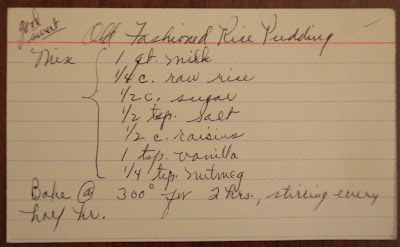 good
sweet
Old Fashioned Rice Pudding
Mix
1 qt. milk
1/4 c. raw rice
1/2 c. sugar
1/2 tsp. salt
1/2 c. raisins
1 tsp. vanilla
1/4 tsp. nutmeg
Bake @ 300° for 2 hrs., stirring every
half hr.